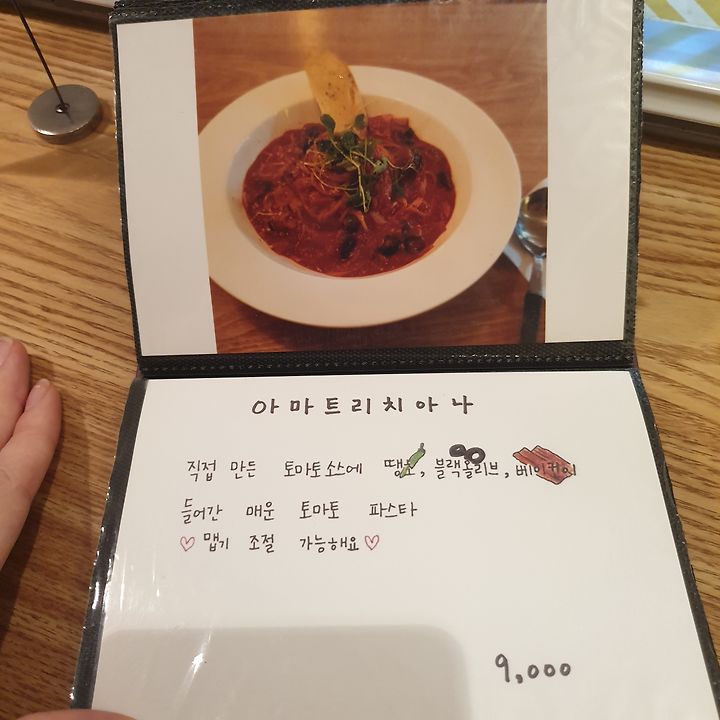 아마트리치아나
직접 만든 토마토소스에 땡초, 블랙올리브, 베이컨이
들어간 매운 토마토 파스타
♡ 맵기 조절 가능해요 ♡
9,000